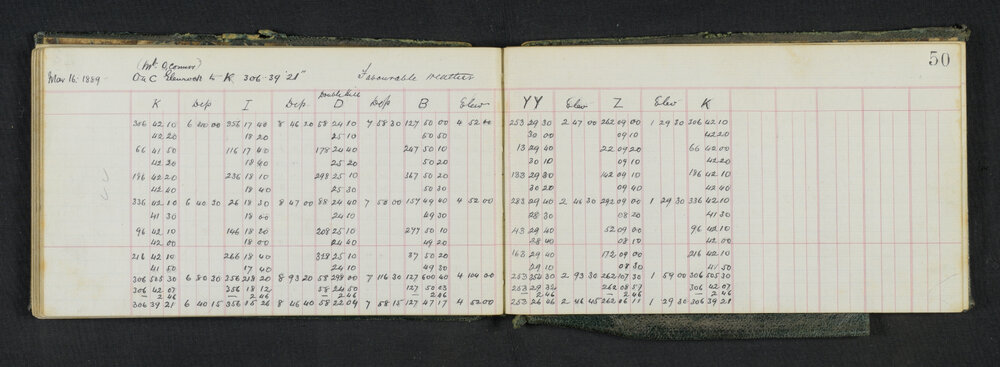 50
(Mt. O'Connor)
Mar 16. 1889 On C Glenrock to K 306.39'21" Favourable weather
K Dep I Dep Double Hill D Dep B Elev YY Elev Z Elev K
306 42 10 6 40 00 356 17 40 8 46 20 58 24 10 7 58 30 127 50 00 4 52 00 253 29 30 2 47 00 262 09 00 1 29 30 306 42 10
42 20 18 20 25 10 50 50 30 00 09 10 42 20
66 41 50 116 17 40 178 24 40 247 50 10 13 29 40 22 09 20 66 42 00
42 20 18 40 25 20 50 20 30 10 09 10 42 20
186 42 20 236 18 10 298 25 10 367 50 20 133 29 30 142 09 10 186 42 10
42 40 18 40 25 30 50 30 30 20 09 40 42 40
336 42 10 6 40 30 26 18 30 8 47 00 88 24 40 7 58 00 157 49 40 4 52 00 283 29 40 2 46 30 292 09 00 1 29 30 336 42 10
41 30 18 00 24 10 49 30 28 30 08 20 41 30
96 42 10 146 18 30 208 25 10 277 50 10 43 29 40 52 09 00 96 42 10
42 00 18 00 24 40 49 20 28 40 08 10 42 00
216 42 10 266 18 40 328 25 10 37 50 20 163 29 40 172 09 00 216 42 10
41 50 17 40 24 10 49 30 29 10 08 30 41 50
306 505 30 6 80 30 356 218 20 8 93 20 58 298 00 7 116 30 127 600 40 4 104 00 253 354 30 2 93 30 262 107 30 1 59 00 306 505 30
306 42 07 356 18 12 58 24 50 127 50 03 253 29 32 262 08 57 306 42 07
— 2 46 — 2 46 — 2 46 — 2 46 — 2 46 — 2 46 — 2 46
306 39 21 6 40 15 356 15 26 8 46 40 58 22 04 7 58 15 127 47 17 4 52 00 253 26 46 2 46 45 262 06 11 1 29 30 306 39 21